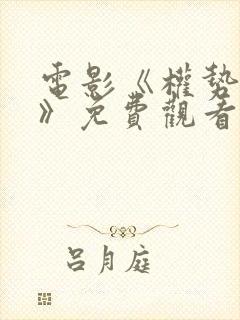 電影《權勢
》免費觀看
呂月庭